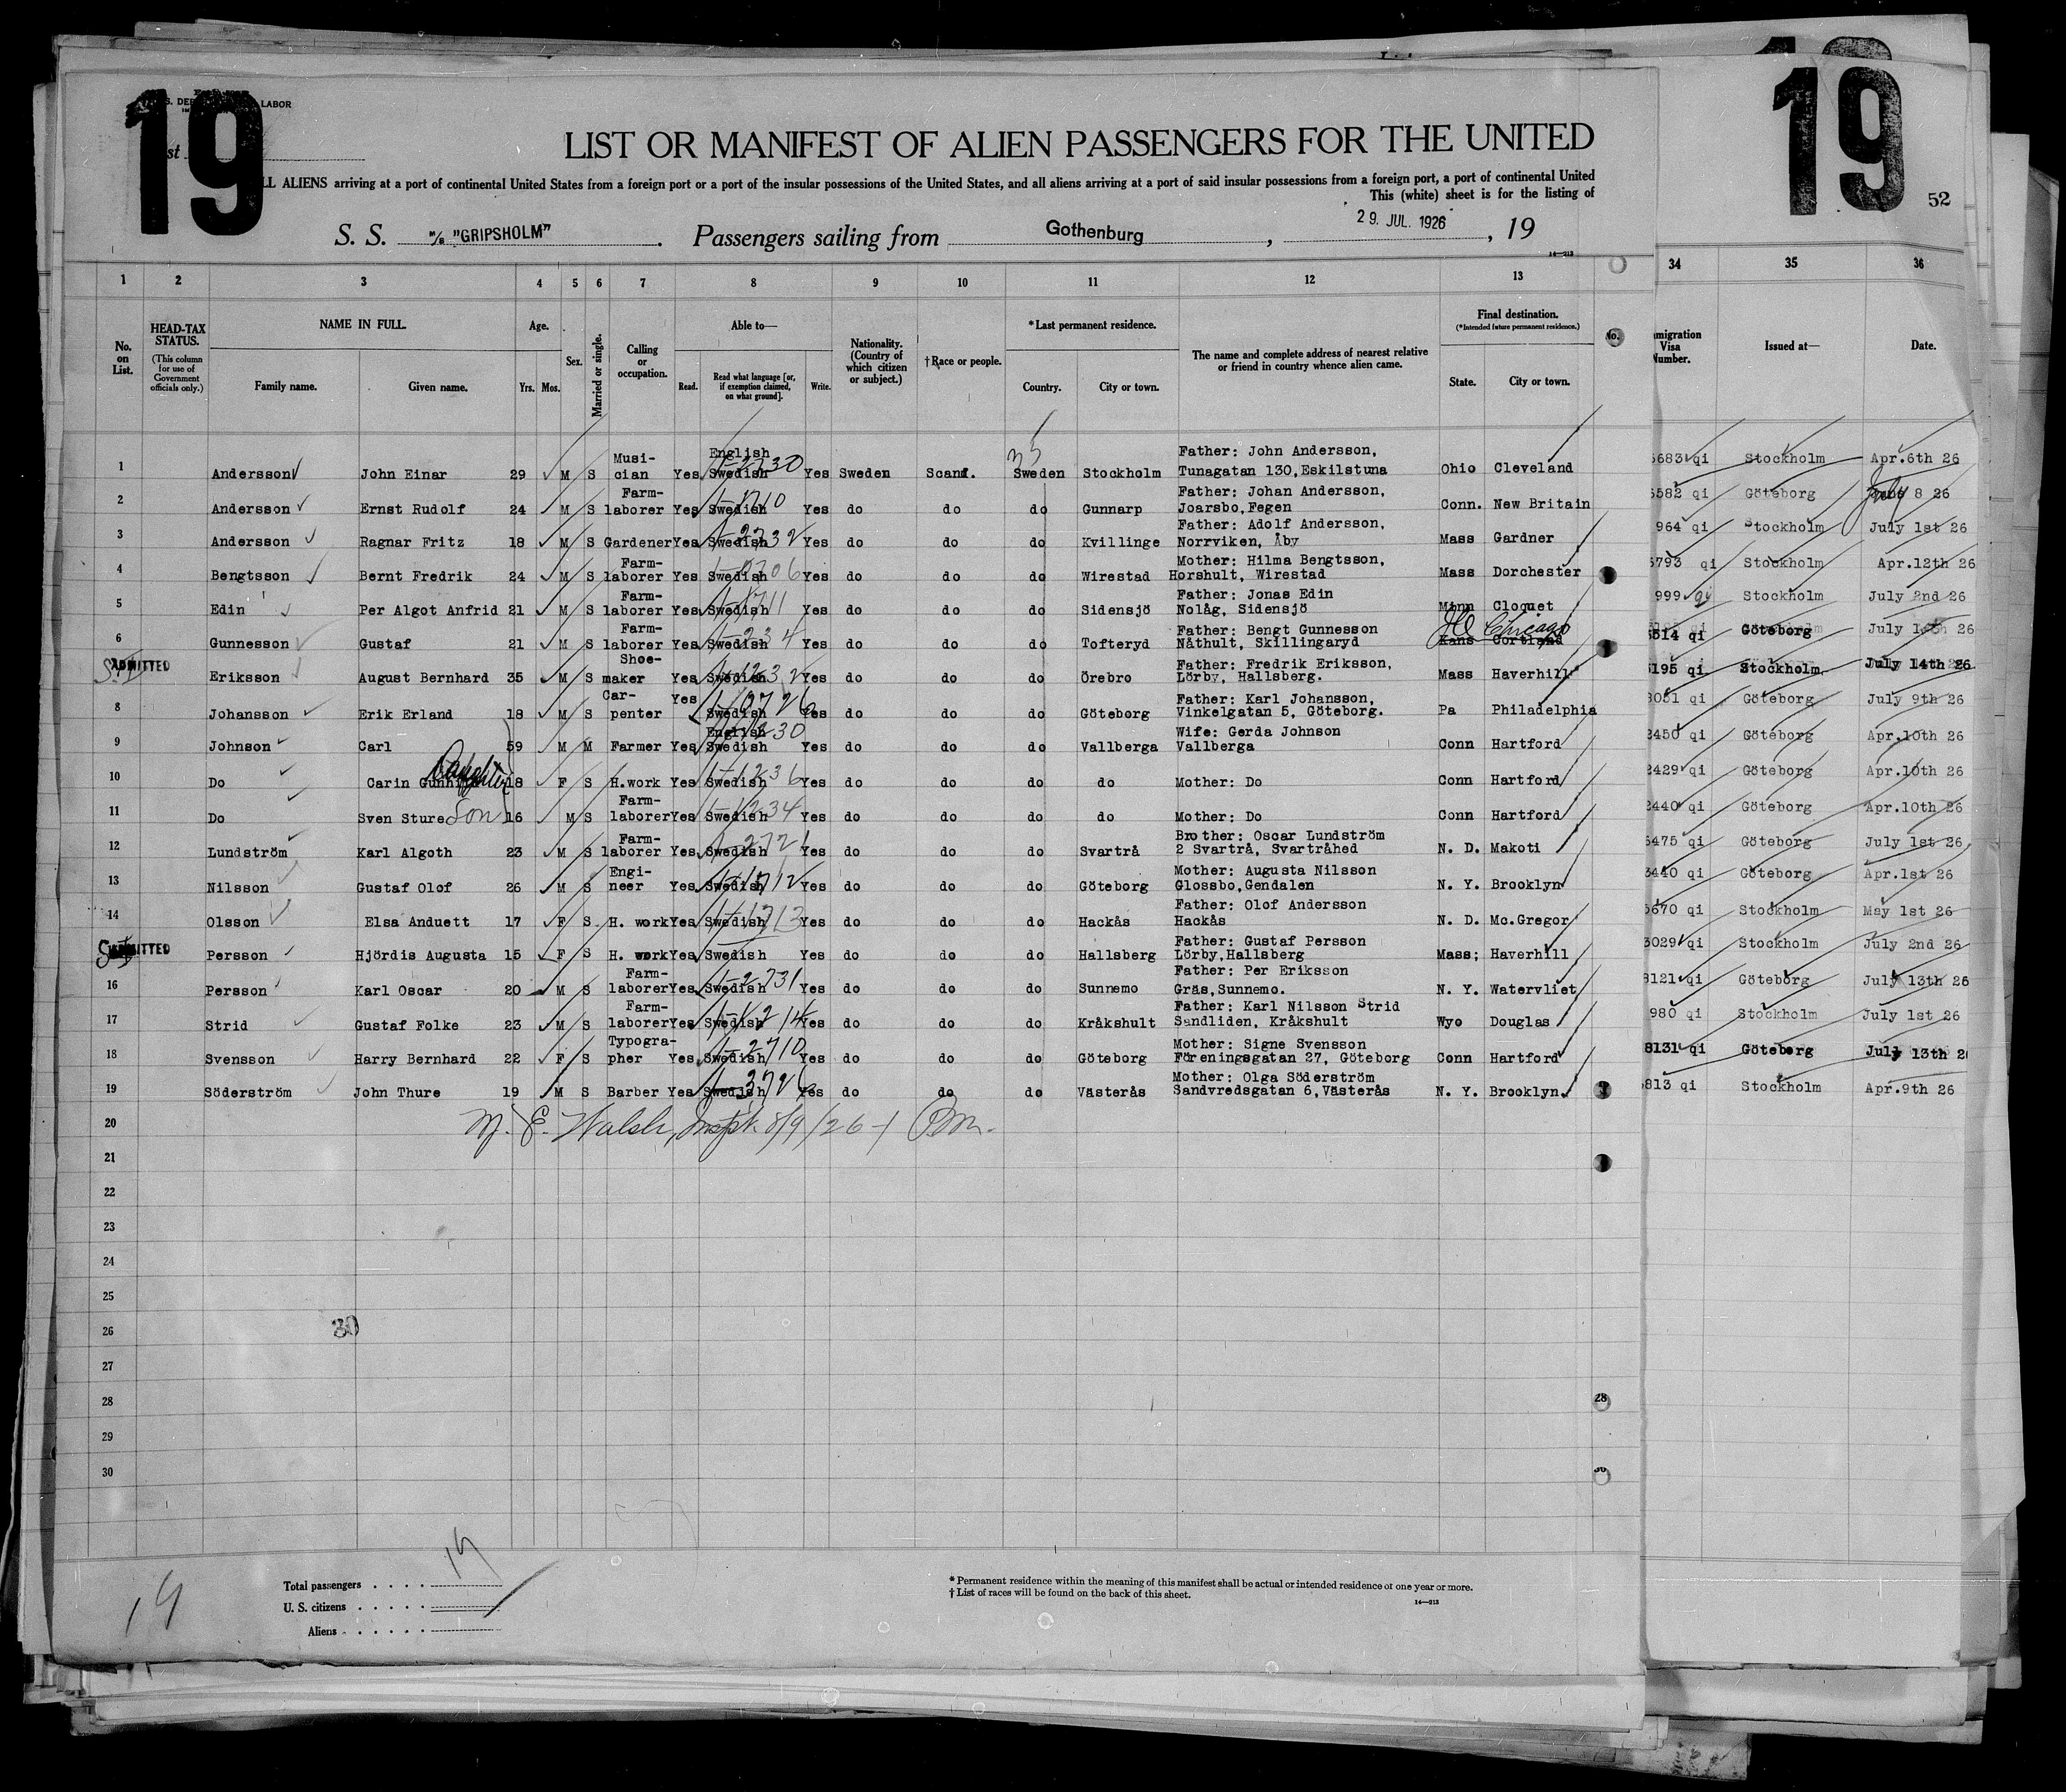 19
19
LABOR
LIST OR MANIFEST OF ALIEN PASSENGERS FOR THE UNITED
ALIENS arriving at a port of continental United States from a foreign port or a port of the insular possessions of the United States, and all aliens arriving at a port of said insular possessions from a foreign port, a port of continental United
This (white) sheet is for the listing of
52
S. S. M/S "GRIPSHOLM". Passengers sailing from Gothenburg, 29. JUL. 1926, 19
14—213
1 2 3 4 5 6 7 8 9 10 11 12 13 34 35 36
No. on List.
HEAD-TAX STATUS.
(This column for use of Government officials only.)
NAME IN FULL.
Family name. Given name.
Age.
Yrs. Mos.
Sex.
Married or single.
Calling or occupation.
Able to—
Read. Read what language [or, if exemption claimed, on what ground]. Write.
Nationality. (Country of which citizen or subject.)
†Race or people.
*Last permanent residence.
Country. City or town.
The name and complete address of nearest relative or friend in country whence alien came.
Final destination.
(*Intended future permanent residence.)
State. City or town.
No.
Visa
Issued at—
Date.
1 Andersson John Einar 29 M S Musi-cian Yes English Swedish Yes Sweden Scand. Sweden Stockholm Father: John Andersson, Tunagatan 130, Eskilstuna Ohio Cleveland 683 qi Stockholm Apr.6th 26
2 Andersson Ernst Rudolf 24 M S Farm-laborer Yes Swedish Yes do do do Gunnarp Father: Johan Andersson, Joarsbo, Fegen Conn. New Britain 582 qi Göteborg July 8 26
3 Andersson Ragnar Fritz 18 M S Gardener Yes Swedish Yes do do do Kvillinge Father: Adolf Andersson, Norrviken, Åby Mass Gardner 964 qi Stockholm July 1st 26
4 Bengtsson Bernt Fredrik 24 M S Farm-laborer Yes Swedish Yes do do do Wirestad Mother: Hilma Bengtsson, Horshult, Wirestad Mass Dorchester 793 qi Stockholm Apr.12th 26
5 Edin Per Algot Anfrid 21 M S Farm-laborer Yes Swedish Yes do do do Sidensjö Father: Jonas Edin Nolåg, Sidensjö Minn Cloquet 999 qi Stockholm July 2nd 26
6 Gunnesson Gustaf 21 M S Farm-laborer Yes Swedish Yes do do do Tofteryd Father: Bengt Gunnesson Nåthult, Skillingaryd Kans Cortland Ill Chicago 514 qi Göteborg July 26
ADMITTED Eriksson August Bernhard 35 M S Shoe-maker Yes Swedish Yes do do do Örebro Father: Fredrik Eriksson, Lörby, Hallsberg. Mass Haverhill 195 qi Stockholm July 14th 26
8 Johansson Erik Erland 18 M S Car-penter Yes Swedish Yes do do do Göteborg Father: Karl Johansson, Vinkelgatan 5, Göteborg. Pa Philadelphia 3051 qi Göteborg July 9th 26
9 Johnson Carl 59 M M Farmer Yes English Swedish Yes do do do Vallberga Wife: Gerda Johnson Vallberga Conn Hartford 2450 qi Göteborg Apr.10th 26
10 Do Carin Gunhild Daughter 18 F S H.work Yes Swedish Yes do do do do Mother: Do Conn Hartford 2429 qi Göteborg Apr.10th 26
11 Do Sven Sture Son 16 M S Farm-laborer Yes Swedish Yes do do do do Mother: Do Conn Hartford 2440 qi Göteborg Apr.10th 26
12 Lundström Karl Algoth 23 M S Farm-laborer Yes Swedish Yes do do do Svartrå Brother: Oscar Lundström 2 Svartrå, Svartråhed N. D. Makoti 6475 qi Göteborg July 1st 26
13 Nilsson Gustaf Olof 26 M S Engi-neer Yes Swedish Yes do do do Göteborg Mother: Augusta Nilsson Glossbo, Gendalen N. Y. Brooklyn 3440 qi Göteborg Apr.1st 26
14 Olsson Elsa Anduett 17 F S. H. work Yes Swedish Yes do do do Hackås Father: Olof Andersson Hackås N. D. Mc.Gregor 5670 qi Stockholm May 1st 26
ADMITTED Persson Hjördis Augusta 15 F S H. work Yes Swedish Yes do do do Hallsberg Father: Gustaf Persson Lörby, Hallsberg Mass; Haverhill 3029 qi Stockholm July 2nd 26
16 Persson Karl Oscar 20 M S Farm-laborer Yes Swedish Yes do do do Sunnemo Father: Per Eriksson Gräs, Sunnemo. N. Y. Watervliet 8121 qi Göteborg July 13th 26
17 Strid Gustaf Folke 23 M S Farm-laborer Yes Swedish Yes do do do Kråkshult Father: Karl Nilsson Strid Sandliden, Kråkshult Wyo Douglas 980 qi Stockholm July 1st 26
18 Svensson Harry Bernhard 22 F S Typogra-pher Yes Swedish Yes do do do Göteborg Mother: Signe Svensson Föreningsgatan 27, Göteborg Conn Hartford 8131 qi Göteborg July 13th 2
19 Söderström John Thure 19 M S Barber Yes Swedish Yes do do do Västerås Mother: Olga Söderström Sandvredsgatan 6, Västerås N. Y. Brooklyn 813 qi Stockholm Apr.9th 26
20 M. E. Walsh, Inspt. 8/9/26
21
22
23
24
25
26 30
27
28 28
29
30
19
Total passengers . . . . 19
U. S. citizens . . . . .
Aliens . . . . . .
* Permanent residence within the meaning of this manifest shall be actual or intended residence of one year or more.
† List of races will be found on the back of this sheet.
14—213